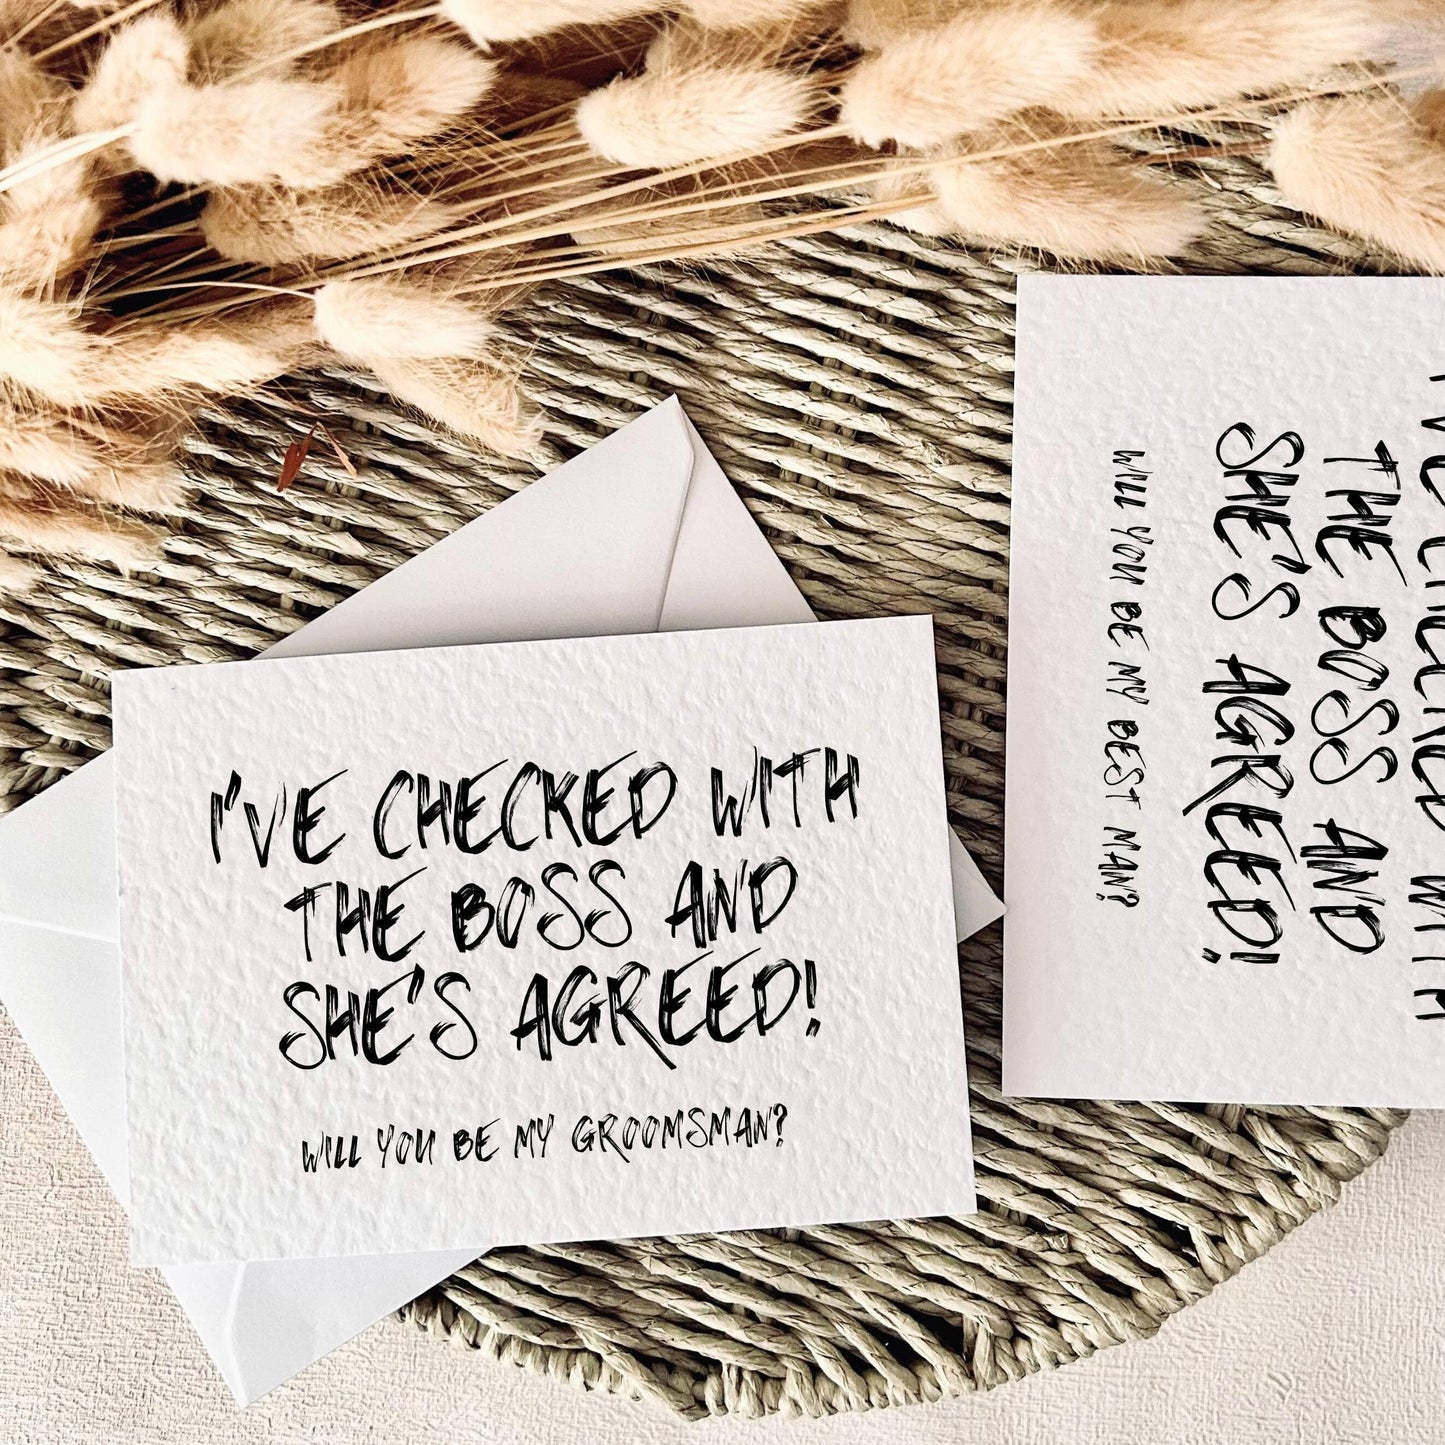 I'VE CHECKED WITH
THE BOSS AND
SHE'S AGREED!
WILL YOU BE MY GROOMSMAN?
I'VE CHECKED WITH
THE BOSS AND
SHE'S AGREED!
WILL YOU BE MY BEST MAN?